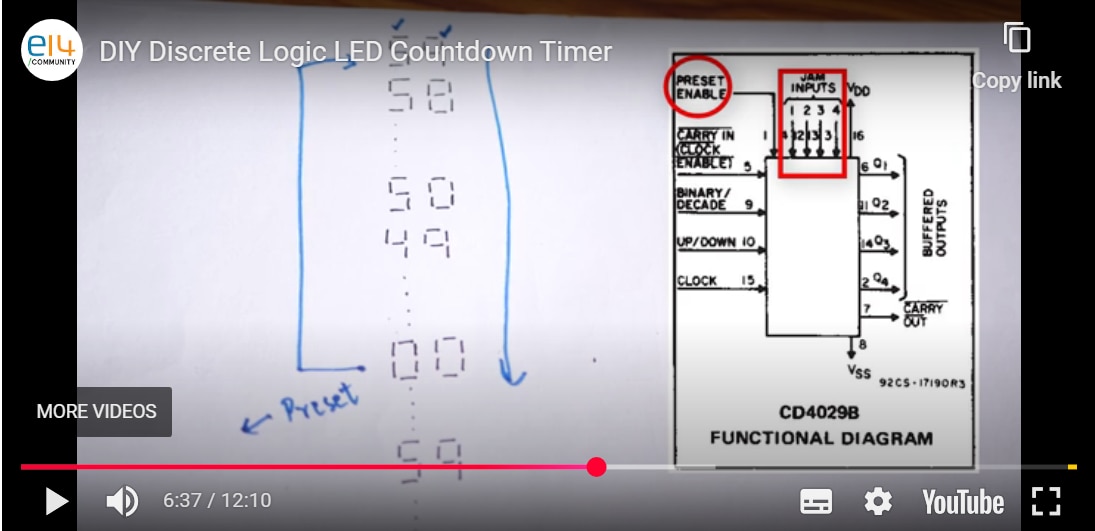 e14
/COMMUNITY
DIY Discrete Logic LED Countdown Timer
Copy link
58
50
49
00
Preset
59
PRESET
ENABLE
JAM
INPUTS
VDD
1 2 3 4
CARRY IN
(CLOCK
ENABLE)
1 4 12 13 3 16
5
6 Q1
BINARY/
DECADE 9
11 Q2
UP/DOWN 10
14 Q3
CLOCK 15
2 Q4
BUFFERED
OUTPUTS
7
CARRY
OUT
8
VSS
92CS-17190R3
CD4029B
FUNCTIONAL DIAGRAM
MORE VIDEOS
6:37 / 12:10
YouTube